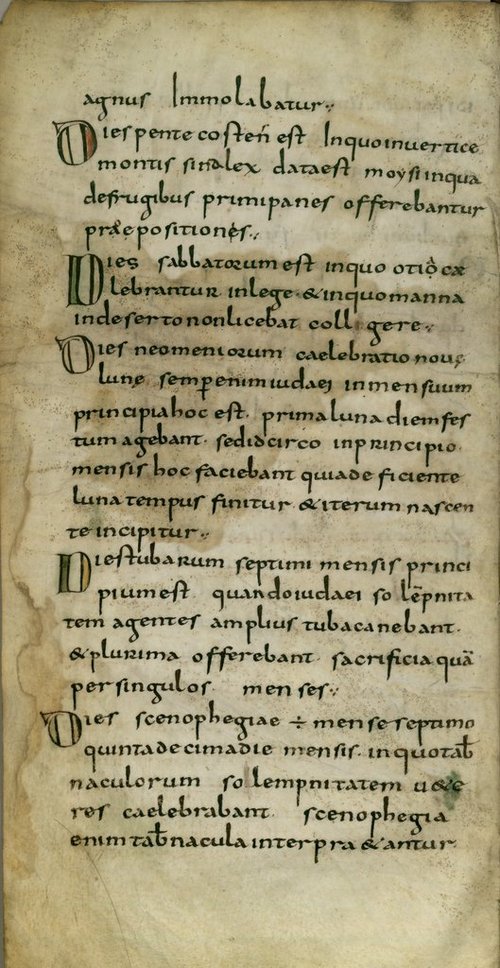 agnus Immolabatur·,
Dies pentecosten̄ est Inquoinvertice
montis sinalex dataest moysi inqua
defrugibus primipanes offerebantur
præpositiones·,
Dies sabbatorum est inquo otiọ cæ
lebrantur inlege· &inquomanna
indeserto nonlicebat colligere·,
Dies neomeniorum caelebratio nouę
lunę semp̄enim iudaei inmensuum
principiahoc est· primaluna diemfes
tum agebant· sedidcirco inprincipio·
mensis hoc faciebant quiadeficiente
luna tempus finitur· &iterum nascen
te incipitur·,
Dies tubarum septimi mensis princi
piumest quandoiudaei solēpnita
tem agentes amplius tubacanebant·
&plurima offerebant· sacrificia quā
persingulos menses·,
Dies scenophegiae ÷ mense septimo
quintadecimadie mensis· inquotab̄
naculorum solempnitatem u&e
res caelebrabant· scenophegia
enim tab̄nacula interpra&antur·